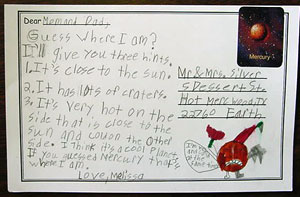 Dear Mom and Dad,
Guess Where I am?
I'll give you three hints.
1. It's close to the sun.
2. It has lots of craters.
3. It's very hot on the
side that is close to the
sun and on the other
side. I think it's a cool planet.
If you guessed Mercury that's
where I am.
Love, Melissa
Mercury
Mr & Mrs. Silver
5 Dessert St.
Hot
22760 Earth
I'm